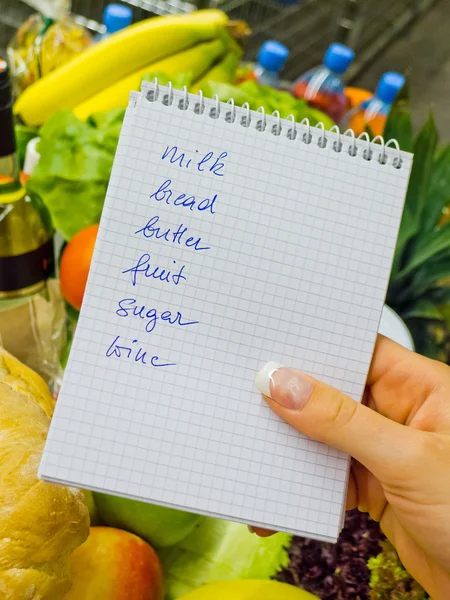 milk
bread
butter
fruit
sugar
wine